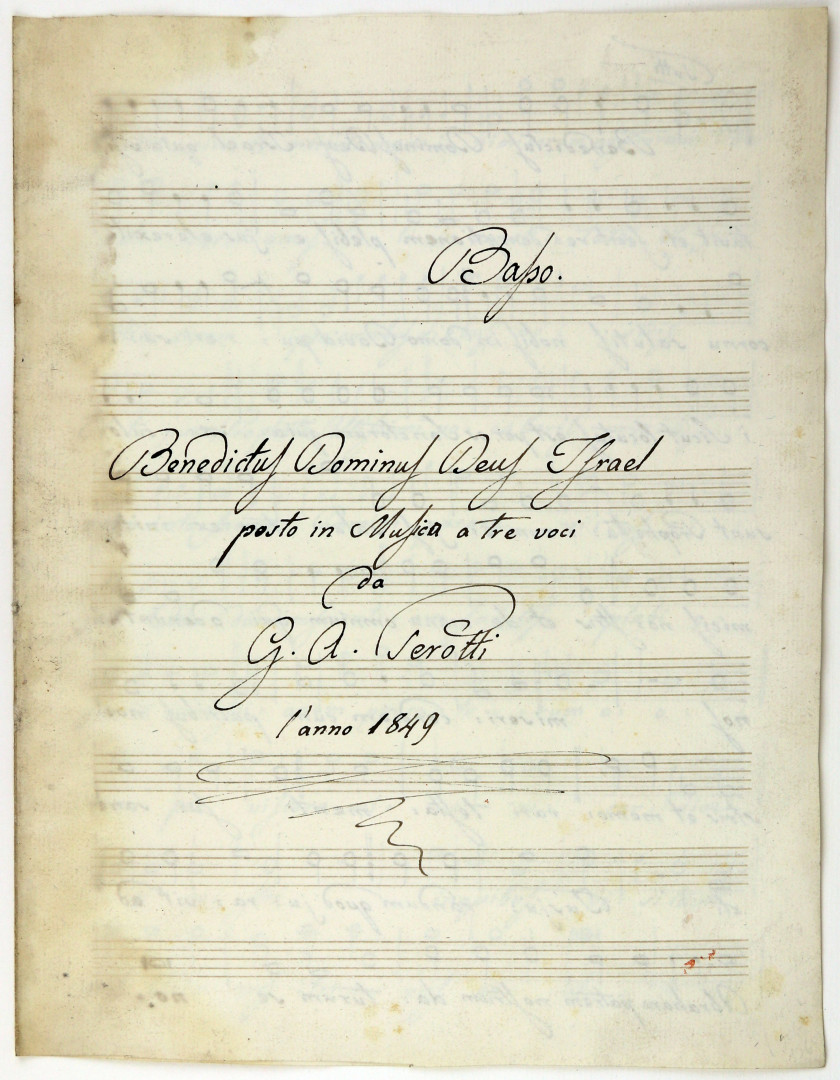 Baſso.
Benedictuſ Dominuſ Deuſ Iſrael
posto in Muſica a tre voci
da
G. A. Serotti
l'anno 1849